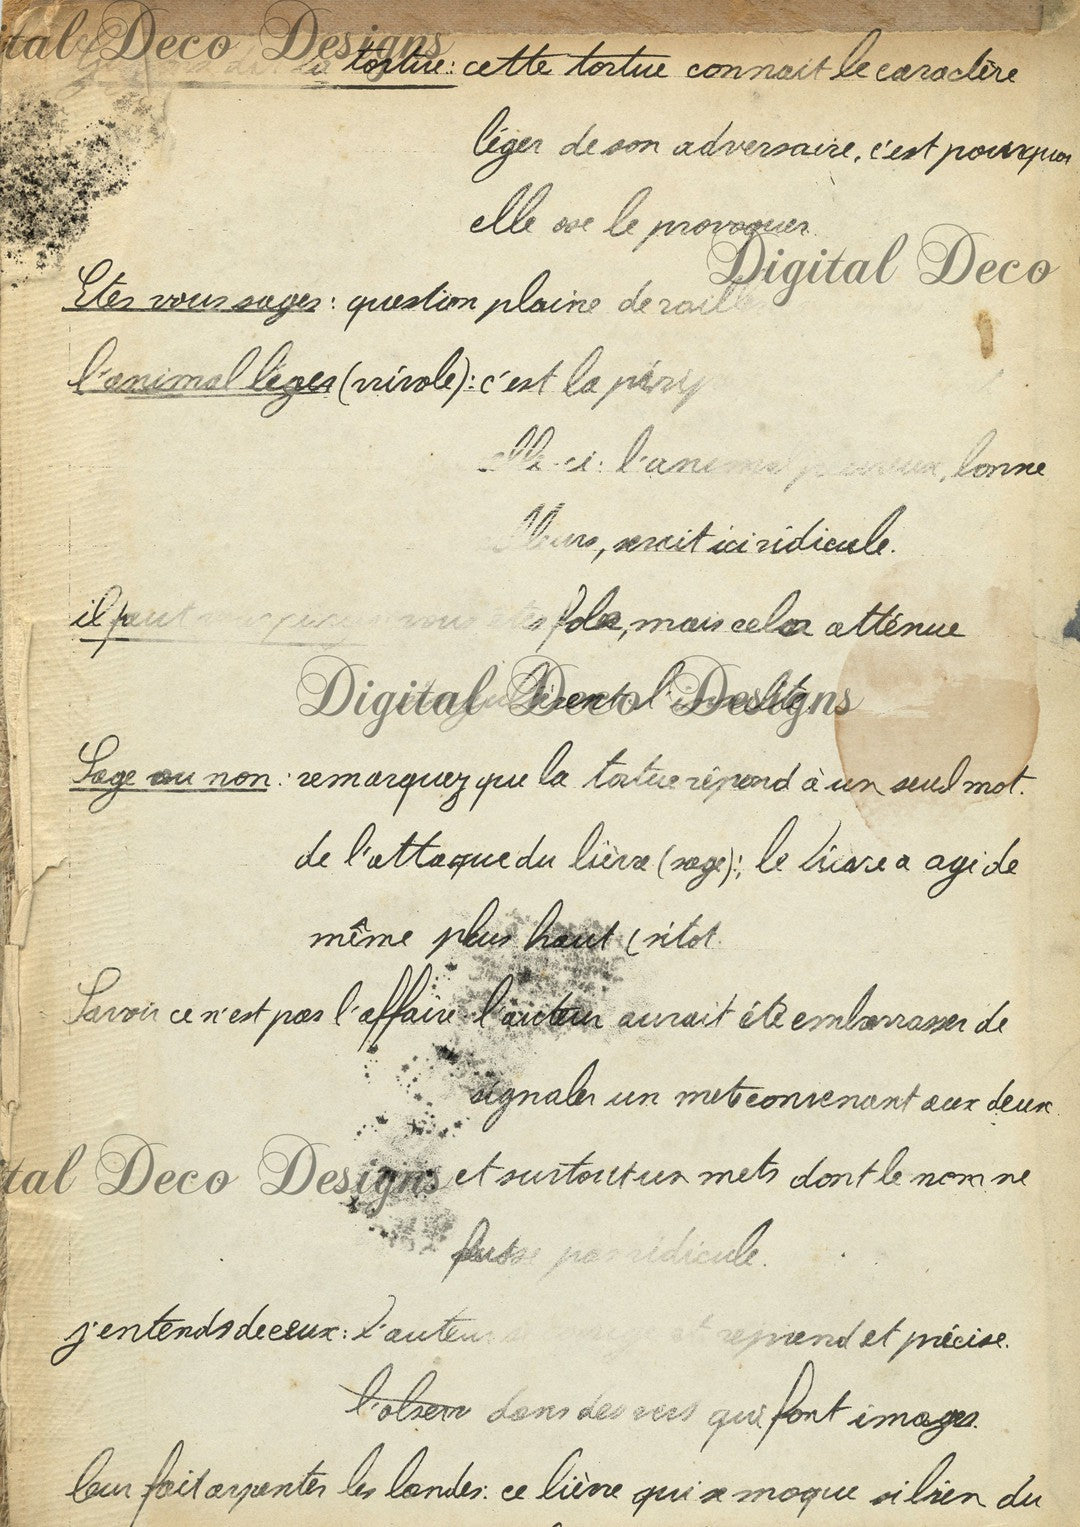 Digital Deco Designs
tortue : cette tortue connait le caractère
léger de son adversaire, c'est pourquoi
elle ose le provoquer.
Digital Deco
Etes vous sages : question plaine de raille
l'animal léger (frivole) : c'est la périp
elle-ci : l'animal peureux, bonne
illeurs, serait ici ridicule.
il faut êtes folle, mais cela atténue
l'insulte
Digital Deco Designs
Sage ou non : remarquez que la tortue répond à un seul mot.
de l'attaque du lièvre (sage) ; le lièvre a agi de
même plus haut (sitot.
Savoir ce n'est pas l'affaire l'auteur aurait été embarrasser de
signaler un mets convenant aux deux
tal Deco Designs et surtout un mets dont le nom ne
fusse pas ridicule.
j'entends de ceux : l'auteur et reprend et précise.
l'observ dans des vers qui font images.
leur fait arpenter les landes : ce lièvre qui se moque si bien du